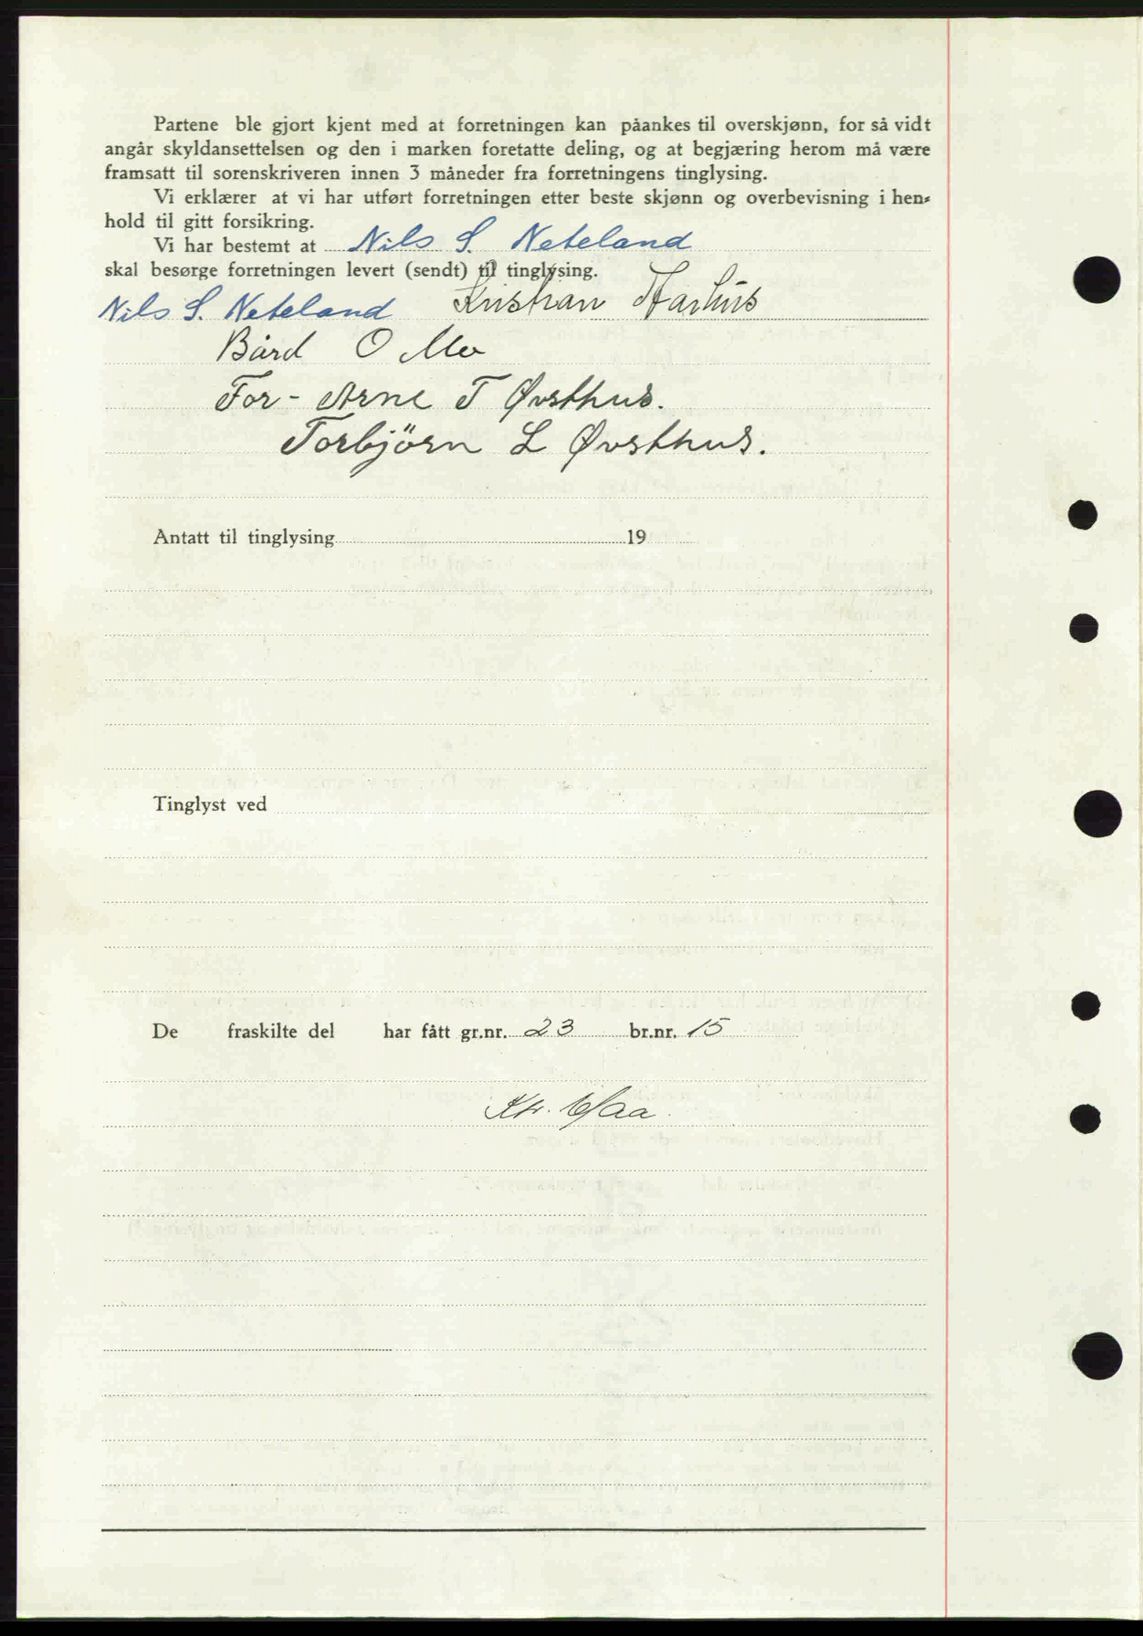 Partene ble gjort kjent med at forretningen kan påankes til overskjønn, for så vidt
angår skyldansettelsen og den i marken foretatte deling, og at begjæring herom må være
framsatt til sorenskriveren innen 3 måneder fra forretningens tinglysing.
Vi erklærer at vi har utført forretningen etter beste skjønn og overbevisning i hen-
hold til gitt forsikring.
Vi har bestemt at Nils S. Neteland
skal besørge forretningen levert (sendt) til tinglysing.
Nils S. Neteland Kristian Aarhus
Bård O Mo
For - Arne T Øvsthus.
Torbjörn L Øvsthus.
Antatt til tinglysing 19
Tinglyst ved
De fraskilte del har fått gr.nr. 23 br.nr. 15
Kr.